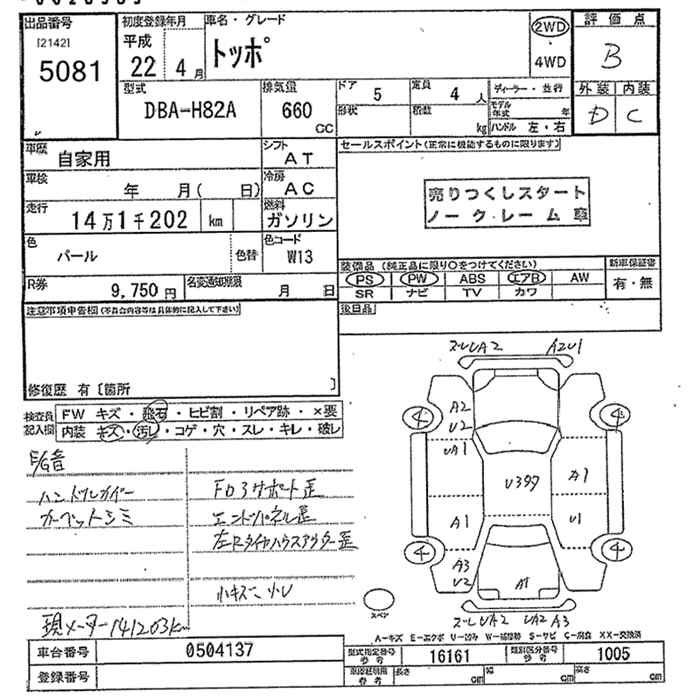 出品番号
[2142]
5081
初度登録年月
平成
22年 4月
車名・グレード
トッポ
2WD
・
4WD
評価点
B
外装 内装
D C
型式
DBA-H82A
排気量
660
CC
ドア
5
定員
4 人
形状
積数
kg
ディーラー・並行
モデル年式 年
ハンドル 左・右
車歴
自家用
シフト
AT
車検
年 月( 日)
冷房
AC
走行
14万1千202 km
燃料
ガソリン
色
パール
色替
色コード
W13
R券
9,750 円
名変通知期限
月 日
セールスポイント(正常に機能するものに限ります)
売りつくしスタート
ノークレーム車
装備品(純正品に限り○をつけてください)
PS PW ABS エアB AW
SR ナビ TV カワ
新車保証書
有・無
後日品
注意事項申告欄(不具合内容等は具体的に記入して下さい)
修復歴 有〔箇所 〕
検査員記入欄
FW キズ・飛石・ヒビ割・リペア跡・×要
内装 キズ・汚し・コゲ・穴・スレ・キレ・破レ
ハンドルカバー
カーペットシミ
FD3サポート歪
エンドパネル歪
左Rタイヤハウスアウター歪
小キズ・小U
現メーター141203km
ズレUA2 A2U1
4 4
A2
U2
UA1
U397
A1
A1
U1
4 4
A3
U2
A1
スペア
ズレUA2 UA2 A3
A-キズ E-エクボ U-凹み W-補修跡 S-サビ C-腐食 XX-交換済
車台番号
0504137
登録番号
型式指定番号
参考
16161
類別区分番号
参考
1005
長さ cm
幅 cm
高さ cm